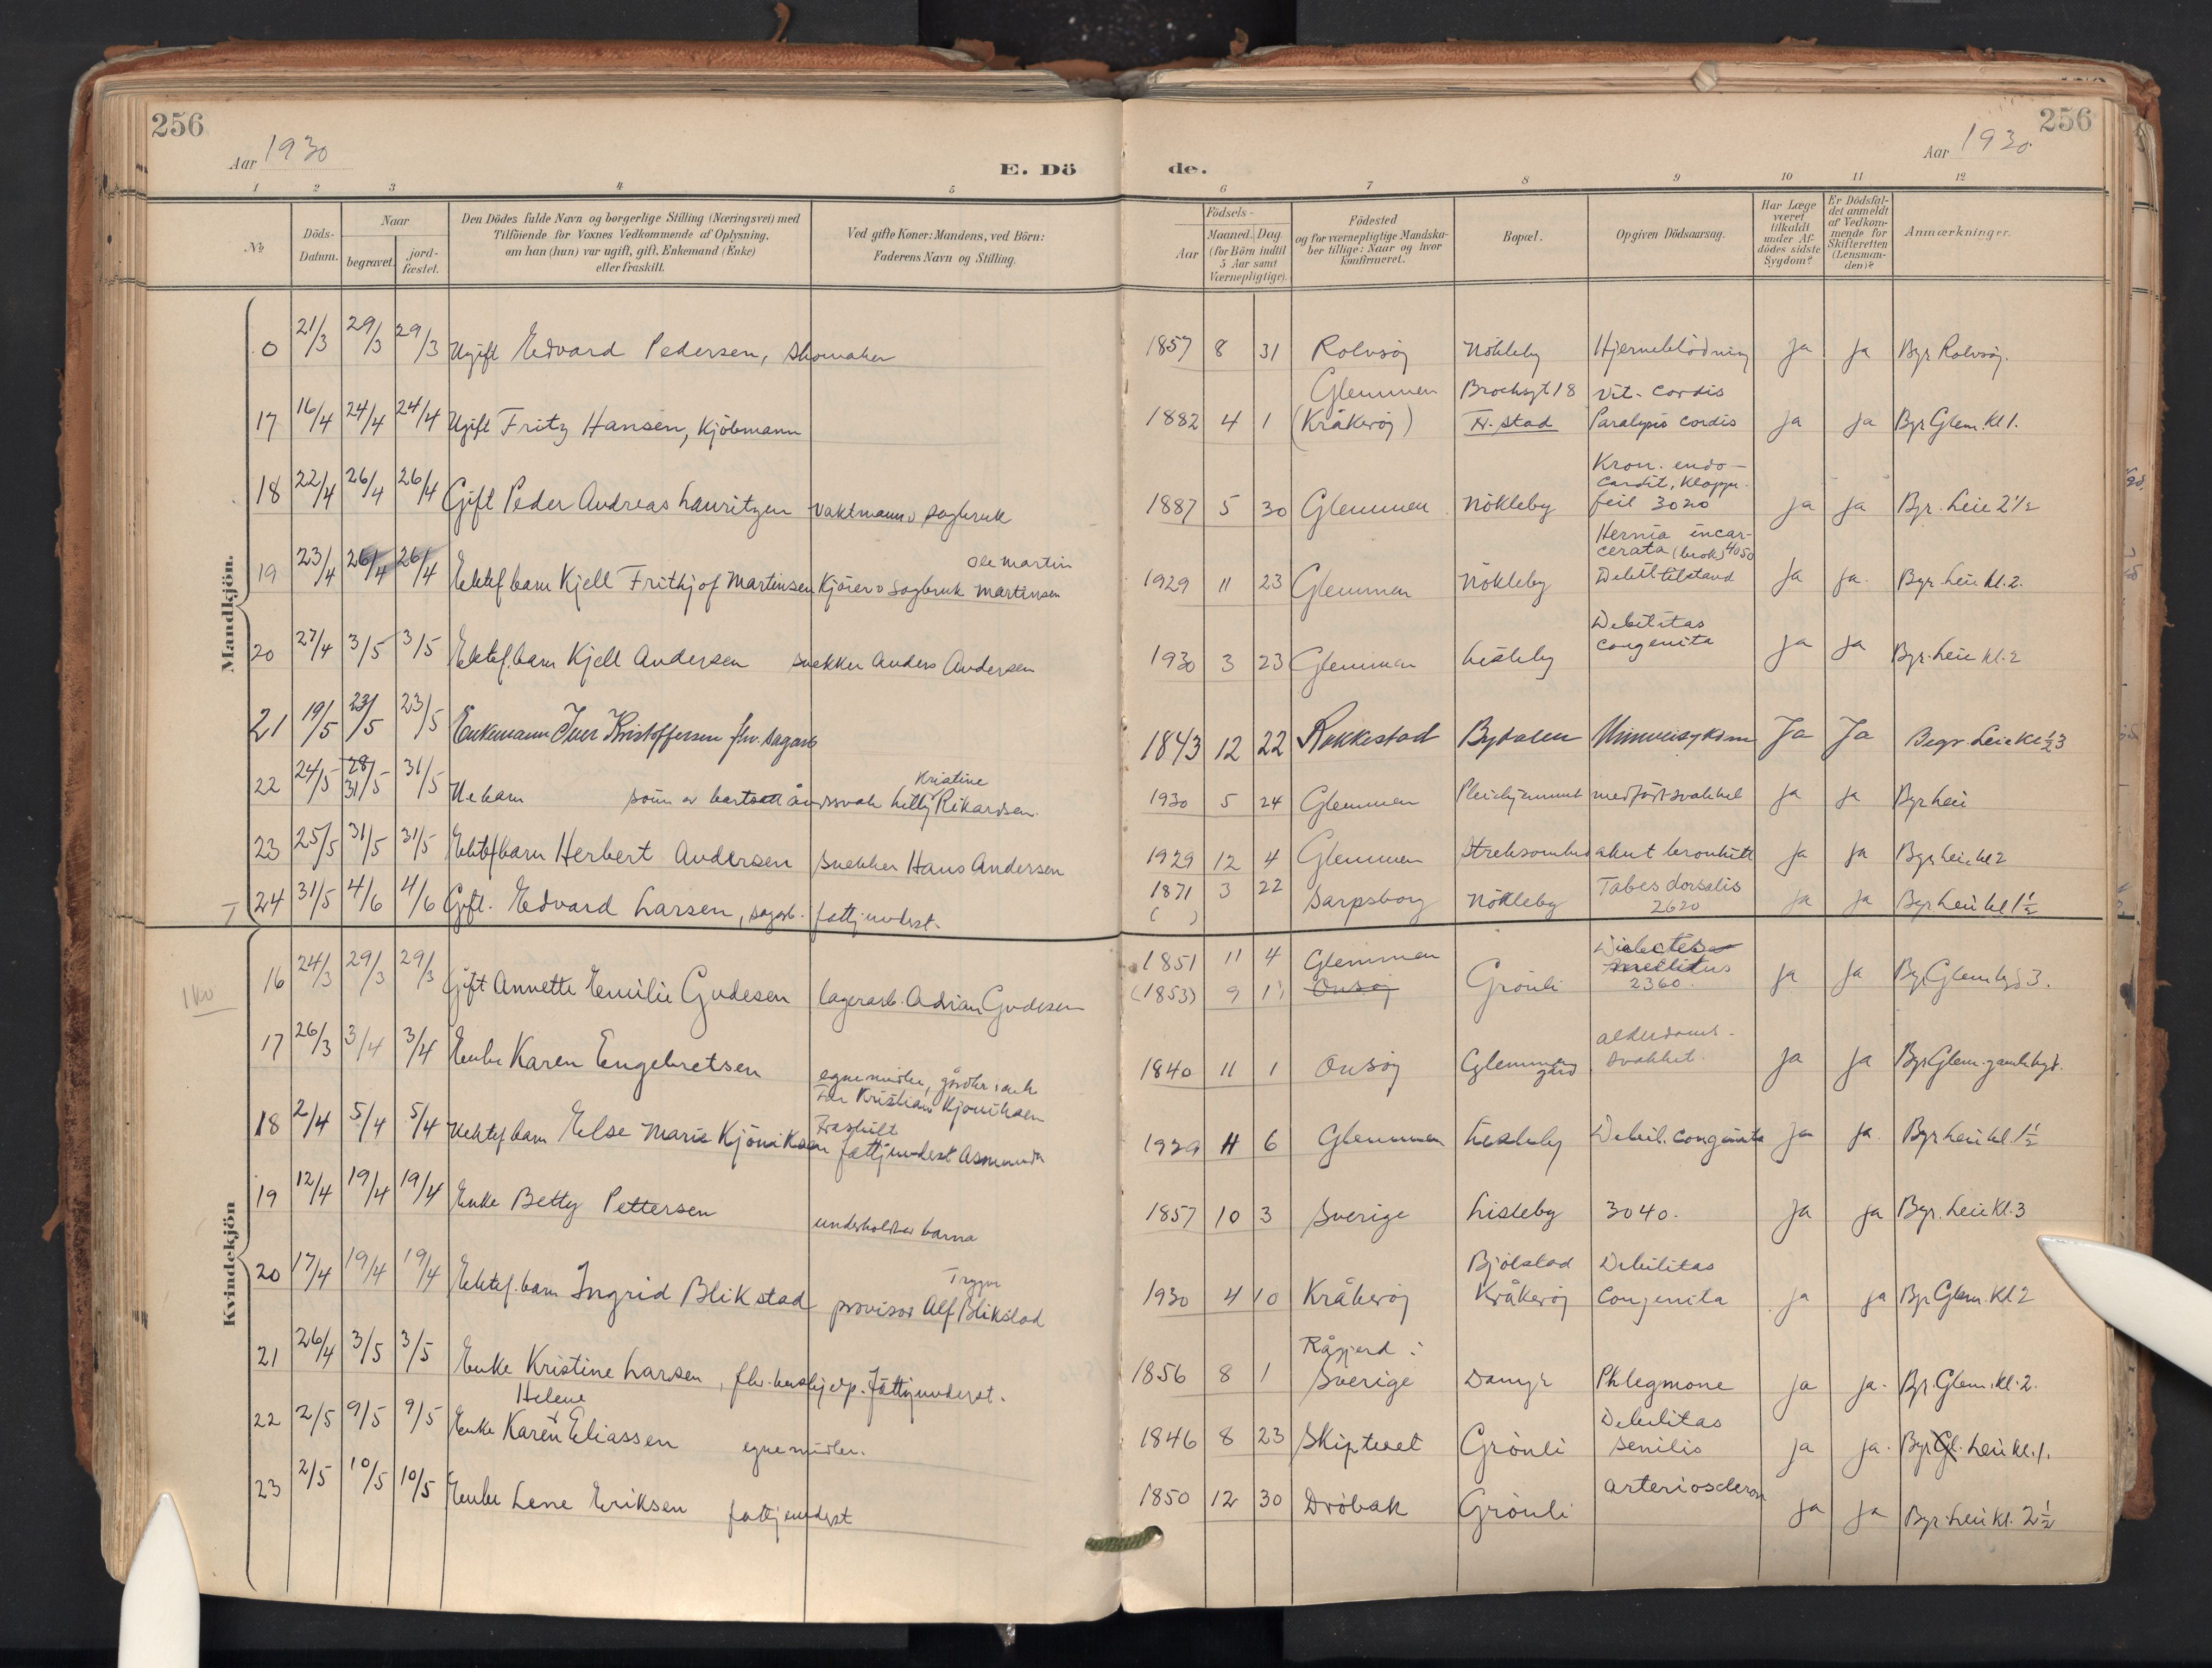 256
Aar 1930
E. Dö
de.
Aar 1930
256
1 2 3 4 5 6 7 8 9 10 11 12
№
Döds-Datum.
Naar
begravet.
jordfæstet.
Den Dödes fulde Navn og borgerlige Stilling (Næringsvei) med
Tilföiende for Voxnes Vedkommende af Oplysning,
om han (hun) var ugift, gift, Enkemand (Enke)
eller fraskilt.
Ved gifte Koner: Mandens, ved Börn:
Faderens Navn og Stilling.
Födsels-
Aar
Maaned. Dag
(for Börn indtil
5 Aar samt
Værnepligtige).
Födested
og for værnepligtige Mandska-
ber tillige: Naar og hvor
konfirmeret.
Bopæl.
Opgiven Dödsaarsag.
Har Læge
været
tilkaldt
under Af-
dödes sidste
Sygdom?
Er Dödsfal-
det anmeldt
af Vedkom-
mende for
Skifteretten
(Lensman-
den)?
Anmærkninger.
Mandkjön.
0 21/3 29/3 29/3 Ugift Edvard Pedersen, skomaker 1857 8 31 Rolvsöj Nökleby Hjerneblödning ja ja Bgr Rolvsöj.
17 16/4 24/4 24/4 Ugift Fritz Hansen, Kjöbmann 1882 4 1 Glemmen (Kråkeröj) Brochsgt 18 Fr.stad Vit. cordis Paralysis cordis ja ja Bgr Glem. Kl 1.
18 22/4 26/4 26/4 Gift Peder Andreas Lauritzen vaktmann v sagbruk 1887 5 30 Glemmen Nökleby Kron. endo-
cardit, klappe-
feil 3020 ja ja Bgr. Leie 2 1/2
19 23/4 26/4 26/4 Ektef barn Kjell Frithjof Martinsen Kjörer v sagbruk Ole Martin Martinsen 1929 11 23 Glemmen Nökleby Hernia incar-
cerata (brok) 4050
Debil tilstand ja ja. Bgr. Leie Kl. 2.
20 27/4 3/5 3/5 Ektef. barn Kjell Andersen snekker Anders Andersen 1930 3 23 Glemmen Lisleby Debilitas
congenita ja ja Bgr. Leie Kl. 2
21 19/5 23/5 23/5 Enkemann Iver Kristoffersen fhv. sagarb 1843 12 22 Rakkestad Bydalen Ja Ja Begr. Leie Kl 1/2 3
22 24/5 28/5 31/5 31/5 Ue barn sönn av bortsatt åndssvak Kristine Rikardsen. 1930 5 24 Glemmen Pleiehjemmet medfödt svakhet ja ja Bgr Leie
23 25/5 31/5 31/5 Ektef barn Herbert Andersen snekker Hans Andersen 1929 12 4 Glemmen akut bronkitt ja ja Bgr Leie kl 2
T 24 31/5 4/6 4/6 Gift. Edvard Larsen, sagarb. fattigunderst. 1871 3 22 ( ) Sarpsborg Nökleby Tabes dorsalis
2620 ja ja Bgr Leie kl 1 1/2
Kvindekjön
16 24/3 29/3 29/3 Gift Annette Emilie Gudesen lagerarb. Adrian Gudesen 1851 11 4 (1853) 9 1) Glemmen Onsöj Grönli Diabetes
mellitus
2360. ja ja Bgr Glem 3.
17 26/3 3/4 3/4 Enke Karen Engebretsen egne midler, 1840 11 1 Onsöj Glemmen gård alderdoms-
svakhet. ja ja Bgr Glem. gamle
18 2/4 5/4 5/4 Uektef barn Else Marie Kjöniksen Far Kristian Kjöniksen
Fraskilt
fattigunderst Asmunda 1929 11 6 Glemmen Lisleby Debil. congenita ja ja. Bgr Leie kl 1 1/2
19 12/4 19/4 19/4 Enke Betty Pettersen underholdt av barna 1857 10 3 Sverige Lisleby 3040. ja ja Bgr. Leie Kl. 3
20 17/4 19/4 19/4 Ektef. barn Ingrid Blikstad provisor Alf Trygve Blikstad 1930 4 10 Kråkeröj Bjölstad
Kråkeröj Debilitas
congenita ja ja Bgr Glem. Kl 2
21 26/4 3/5 3/5 Enke Kristine Larsen, fhv. hushjelp. Fattigunderst. 1856 8 1 Rågjerd i
Sverige Phlegmone ja ja. Bgr. Glem. Kl. 2.
22 2/5 9/5 9/5 Enke Karen Helene Eliassen egne midler. 1846 8 23 Skiptvet Grönli Debilitas
senilis ja ja. Bgr Gl. Leie kl. 1.
23 2/5 10/5 10/5 Enke Lene Eriksen fattigunderst 1850 12 30 Dröbak Grönli arterioscleros ja ja Bgr. Leie Kl. 2 1/2